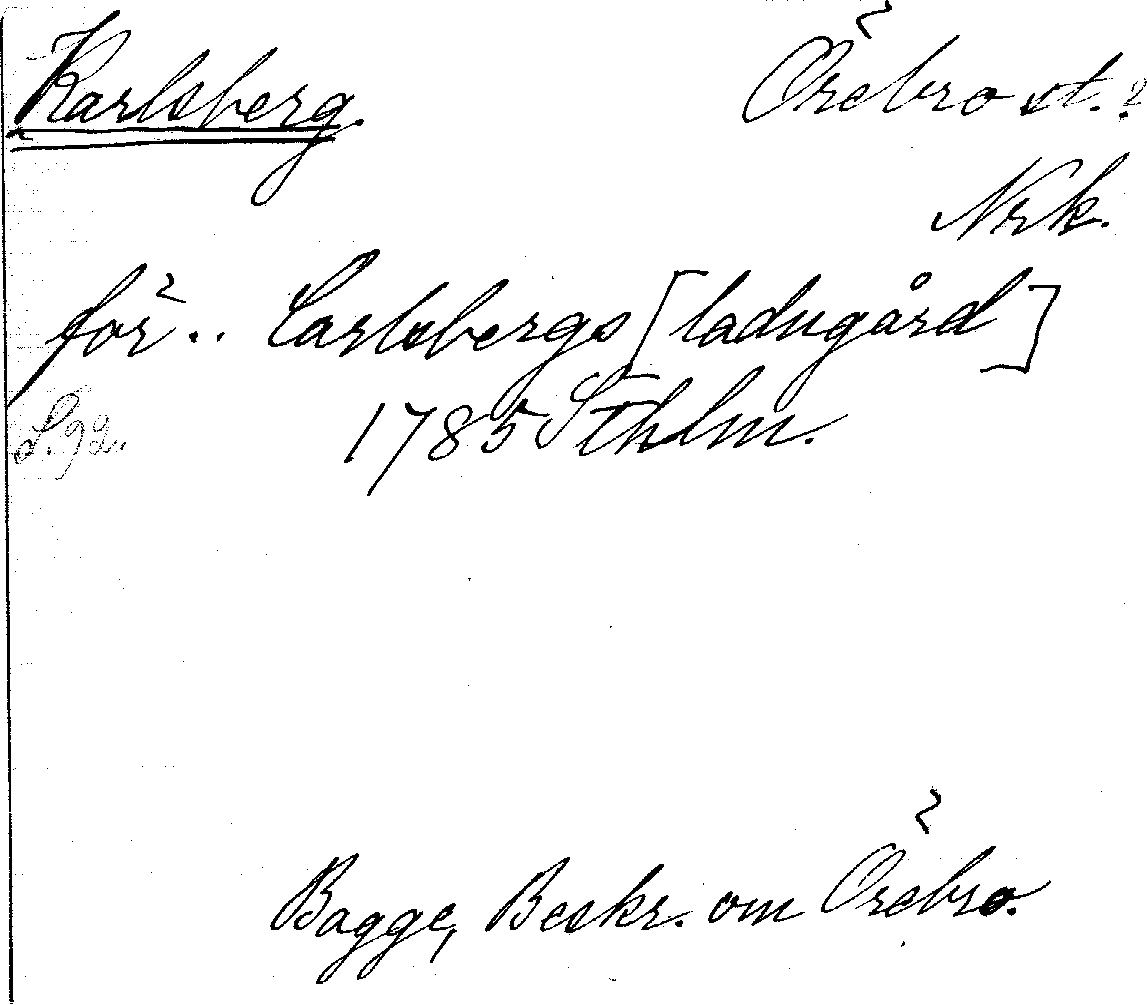 Karlsberg. Örebro st.?
Nrk.
för.. Carlsbergs [ladugård]
S. 92. 1785 Sthlm.
Bagge, Beskr. om Örebro.